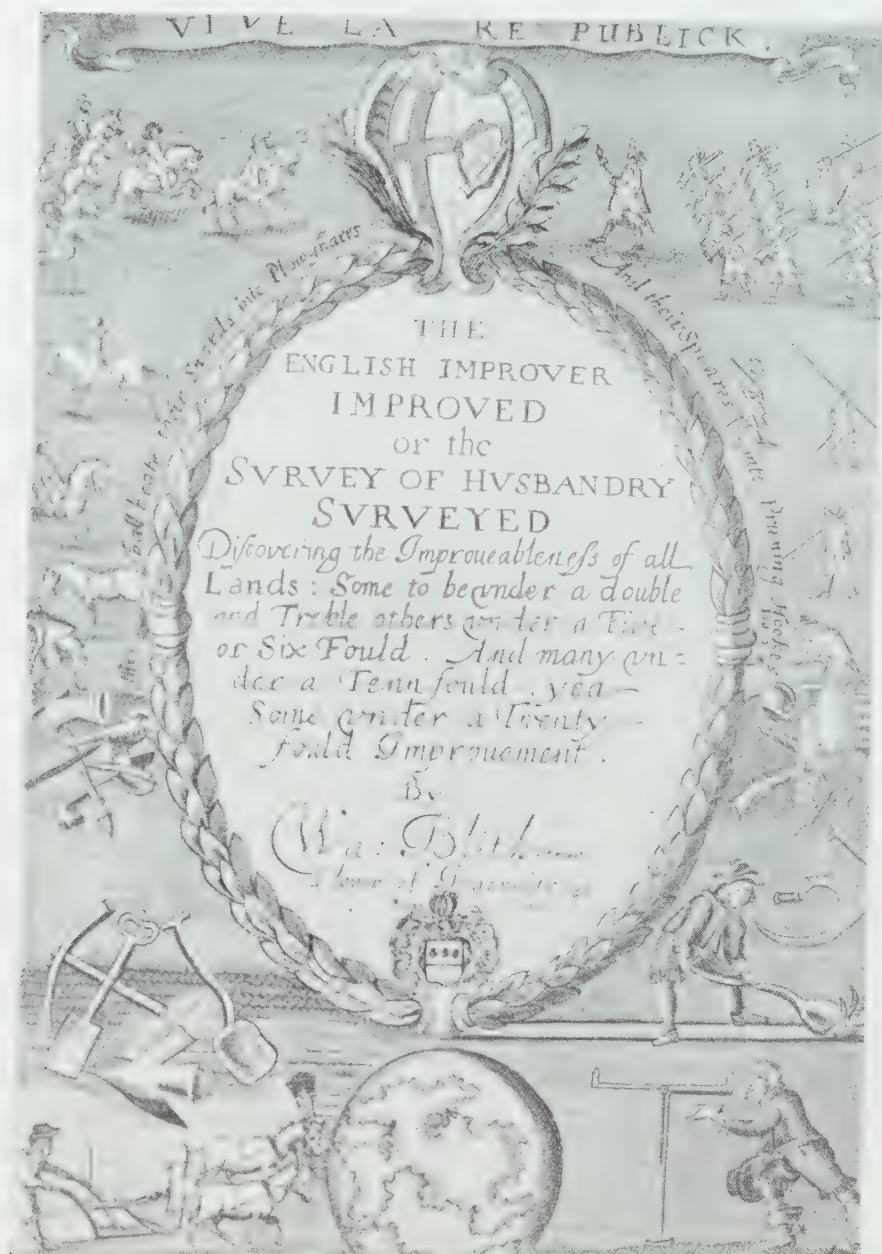 VIVE LA RE PUBLICK.
shall beate their Swords into Plow-shares
And their Speares into Pruning Hookes
THE
ENGLISH IMPROVER
IMPROVED
or the
SVRVEY OF HVSBANDRY
SVRVEYED
Discovering the Improueableness of all
Lands: Some to be vnder a double
and Treble others vnder a Five
or Six Fould. And many vn=
der a Tenn fould, yea
Some vnder a Twenty
fould Improuement.
By
Wa: Blith